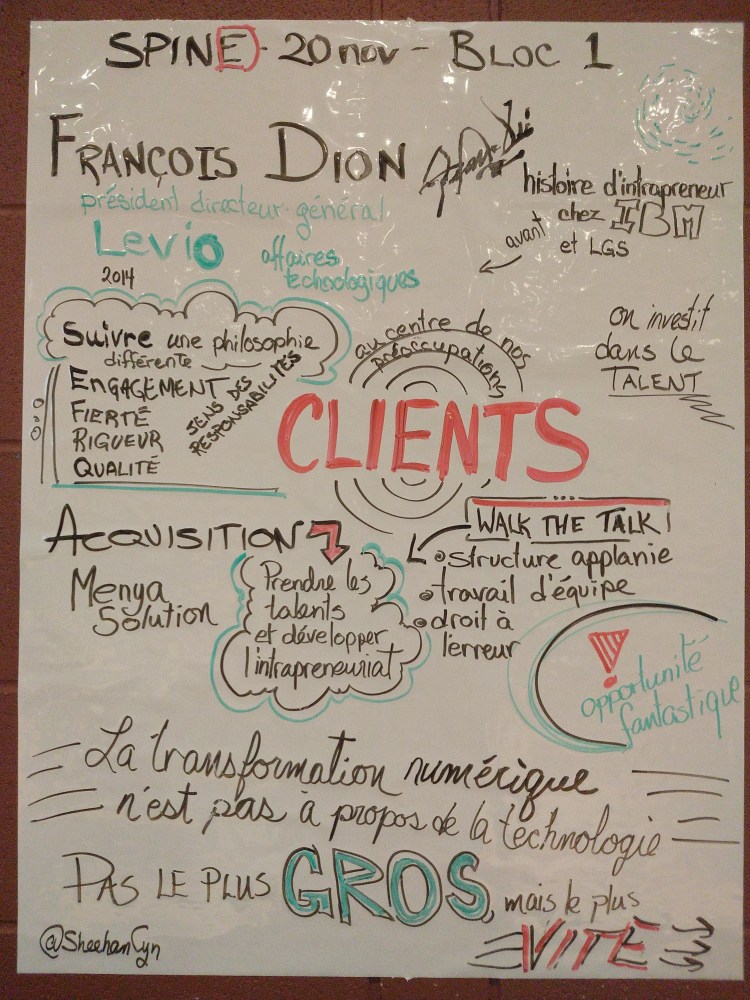 SPINE - 20 nov - BLOC 1
FRANÇOIS DION
président directeur général
Levio
2014
affaires
technologiques
histoire d'intrapreneur
chez IBM
et LGS
avant
Suivre une philosophie
différente
ENGAGEMENT
FIERTÉ
RIGUEUR
QUALITÉ
SENS DES
RESPONSABILITÉS
au centre de nos
préoccupations
CLIENTS
on investit
dans le
TALENT
ACQUISITION
Menya
Solution
Prendre les
talents
et développer
l'intrapreneuriat
WALK THE TALK!
structure applanie
travail d'équipe
droit à
l'erreur
!
opportunité
fantastique
La transformation numérique
n'est pas à propos de la technologie
PAS LE PLUS GROS, mais le plus
VITE
@SheehanCyn